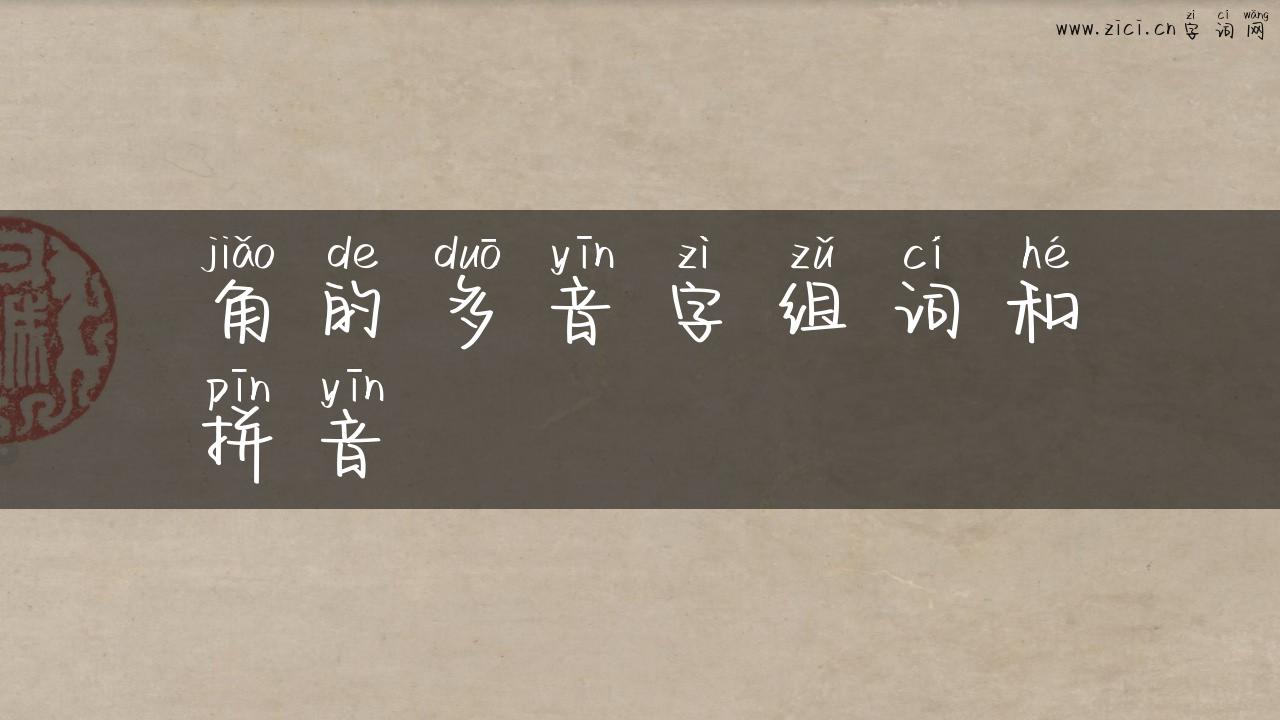 zì cí wǎng
www.zici.cn 字词网
jiǎo de duō yīn zì zǔ cí hé
角的多音字组词和
pīn yīn
拼音